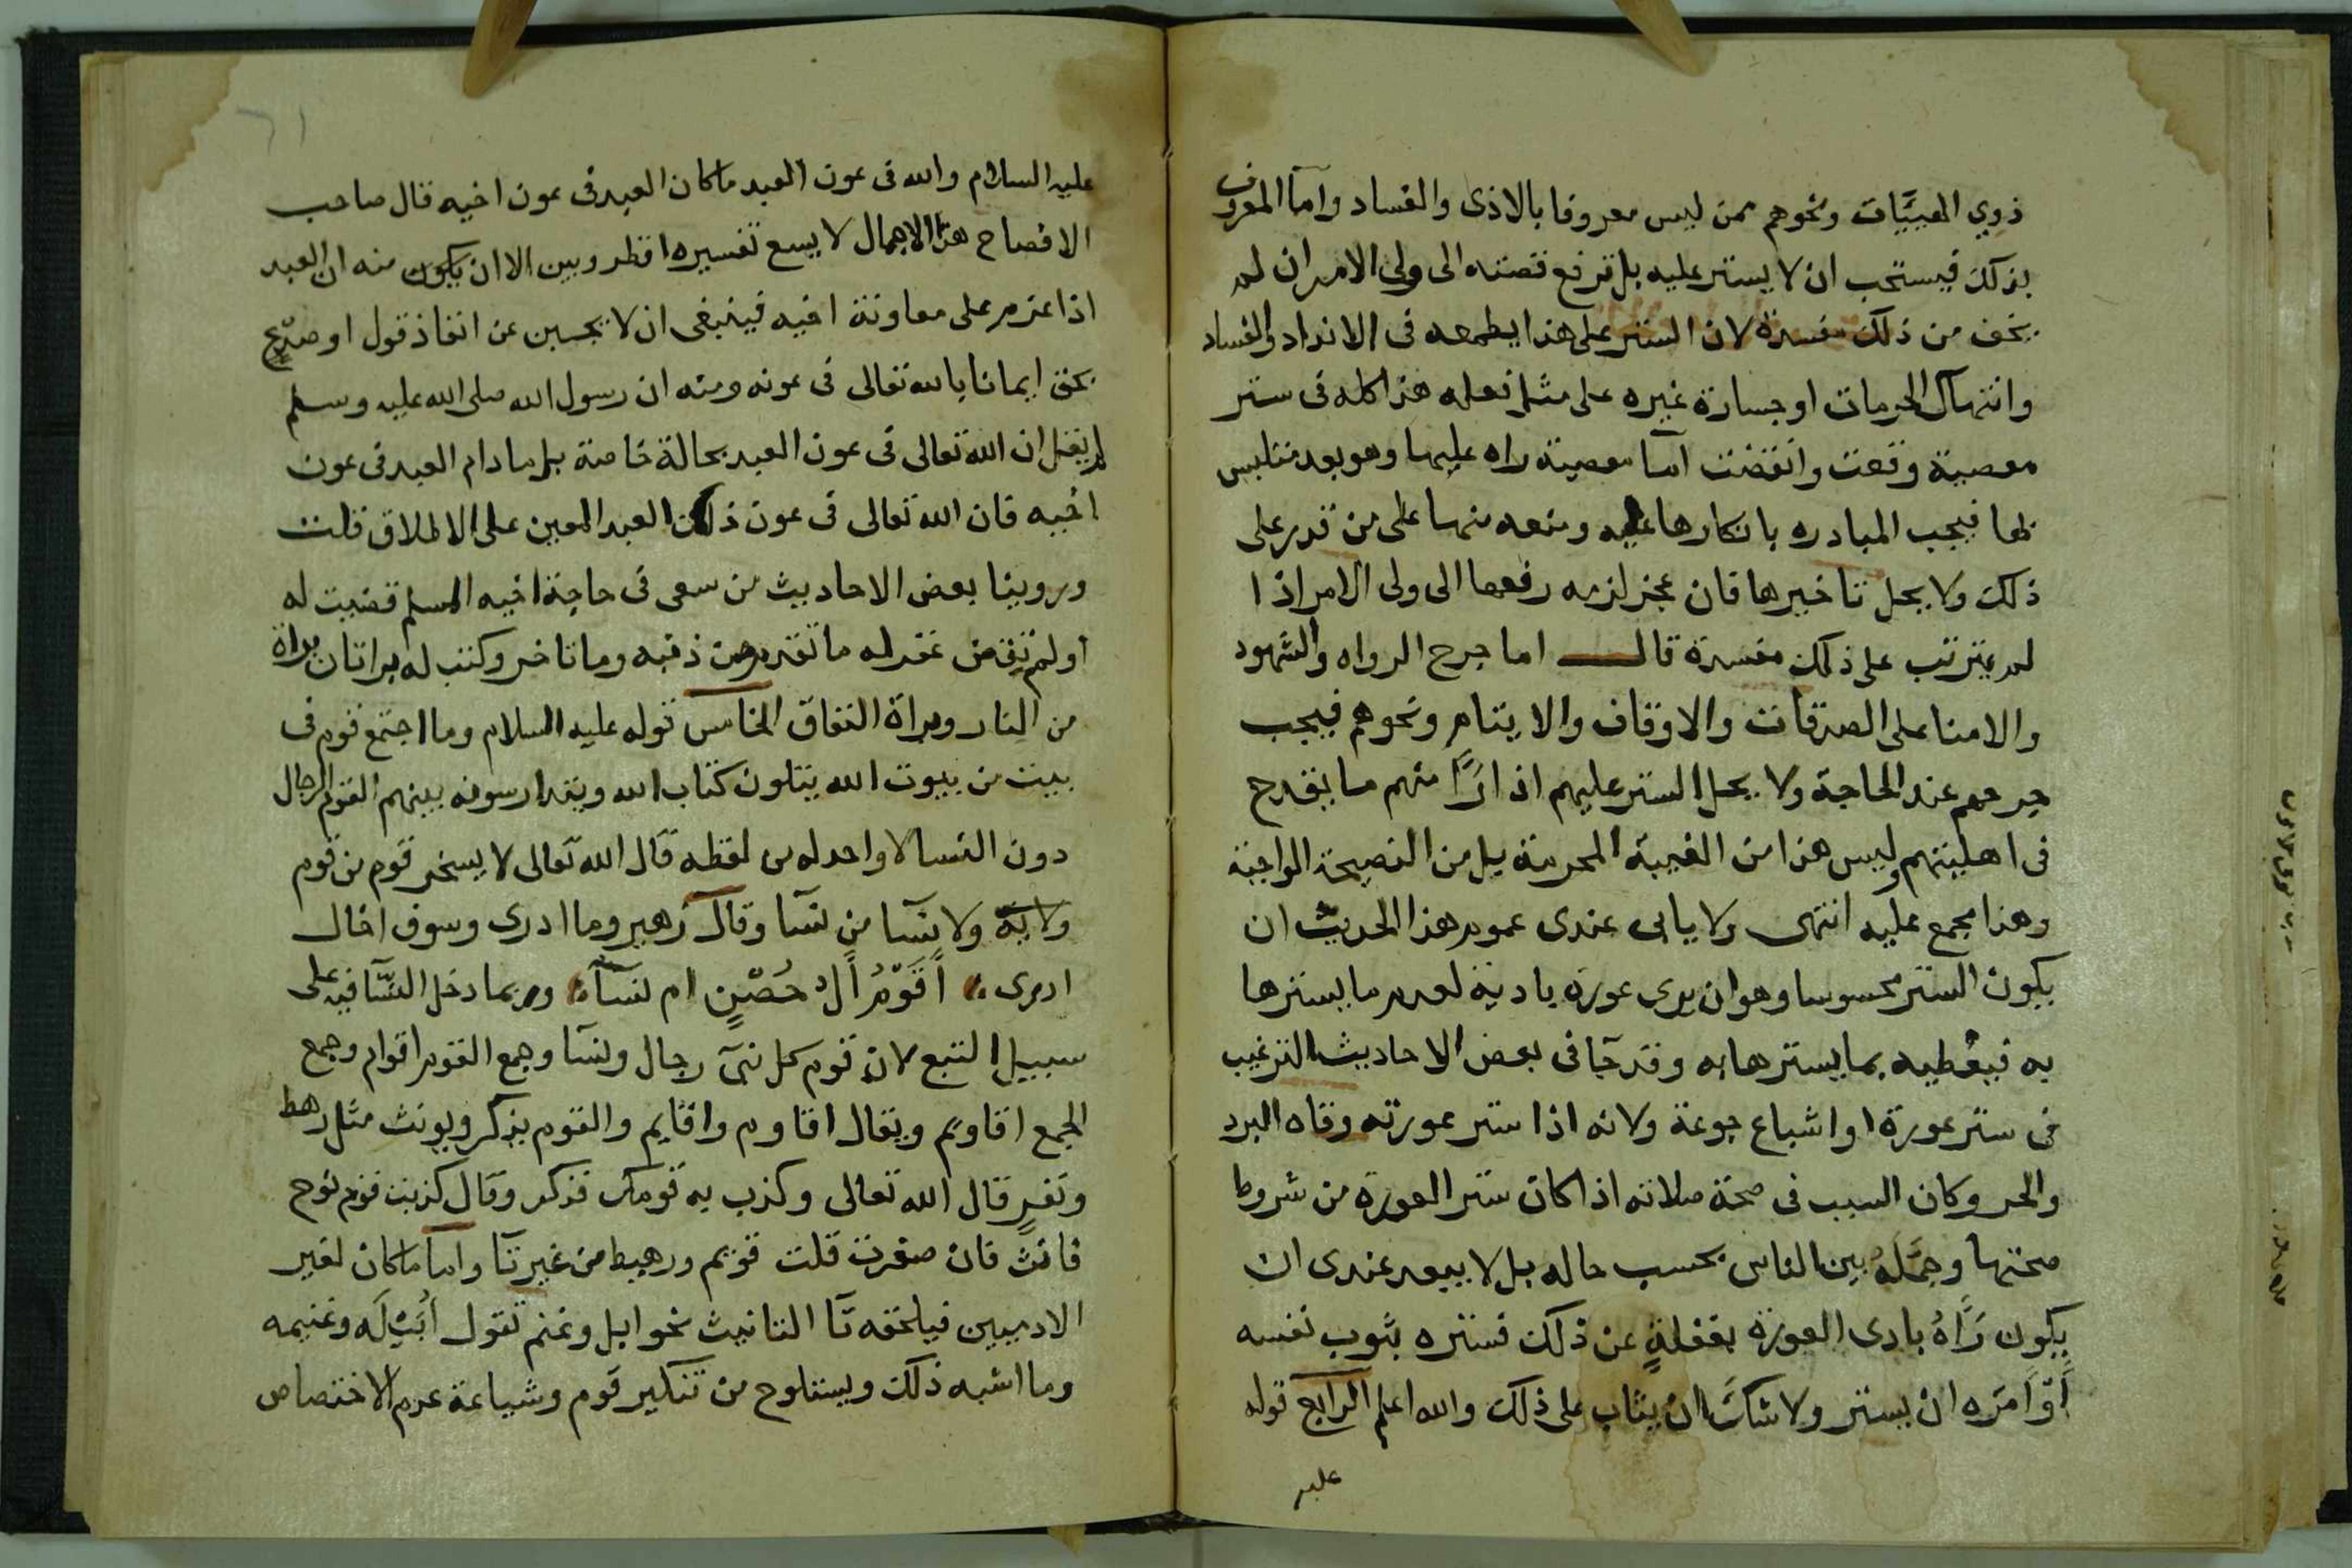 ذوي الهيئات ونحوهم ممن ليس معروفا بالاذى والفساد واما المعروف
بذلك فيستحب ان لا يستر عليه بل ترفع قصته الى ولي الامر ان لم
يخف من ذلك مفسدة لان الستر على هذا يطمعه فى الانداد والفساد
وانتهاك الحرمات او جسارة غيره على مثل فعله هذا كله فى ستر
معصية وقعت وانقضت اما معصية راه عليها وهو بعد متلبس
بها فيجب المبادره بانكارها عليه ومنعه منها على من قدر على
ذلك ولا يحل تاخيرها فان عجز لزمه رفعها الى ولى الامر اذا
لم يترتب على ذلك مفسدة قال اما جرح الرواه والشهود
والامنا على الصدقات والاوقاف والايتام ونحوهم فيجب
جرحهم عند الحاجة ولا يحل الستر عليهم اذا رأا منهم ما يقدح
فى اهليتهم وليس هذا من الغيبة المحرمة بل من النصيحة الواجبة
وهذا مجمع عليه انتهى ولا يابى عندى عموم هذا الحديث ان
يكون الستر محسوسا وهو ان يرى عورة بادية لعدم ما يسترها
به فيغطيه بما يسترها به وقد جآ فى بعض الاحاديث الترغيب
فى ستر عورة او اشباع جوعة ولانه اذا ستر عورته وقاه البرد
والحر وكان السبب فى صحة صلاته اذا كان ستر العورة من شروط
صحتها وجمّله بين الناس بحسب حاله بل لا يبعد عندى ان
يكون رَآهُ بادى العورة بغفلةٍ عن ذلك فستره بثوب نفسه
أَوْ أَمَرَه ان يستتر ولا شكّ ان يثاب على ذلك والله اعلم الرابع قوله
عليه
٦١
عليه السلام والله فى عون العبد ما كان العبد فى عون اخيه قال صاحب
الافصاح هذا الاجمال لا يسع تفسيره اقطر وبين الا ان يكون منه ان العبد
اذا عزم على معاونة اخيه فينبغى ان لا يجبن عن انفاذ قول او صدع
بحق ايمانا بالله تعالى فى عونه ومنه ان رسول الله صلى الله عليه وسلم
لم يقل ان الله تعالى فى عون العبد بحالة خاصة بل ما دام العبد فى عون
اخيه فان الله تعالى فى عون ذلك العبد المعين على الاطلاق قلت
وروينا بعض الاحاديث من سعى فى حاجة اخيه المسلم قضيت له
او لم تقض غفر له ما تقدم من ذنبه وما تاخر وكتب له براتان براة
من النار وبراة النفاق الخامس قوله عليه السلام وما اجتمع قوم فى
بيت من بيوت الله يتلون كتاب الله ويتدارسونه بينهم القوم الرجال
دون النسا لا واحد له من لفظه قال الله تعالى لا يسخر قوم من قوم
ولا نسا من نسا وقال زهير وما ادرى وسوف اخال
ادرى أَقَوْمٌ أَلُ حُصْنٍ ام نسآءُ وربما دخل النسآ فيه على
سبيل التبع لان قوم كل نبى رجال ونسا وجمع القوم اقوام وجمع
الجمع اقاويم ويقال اقاوم واقايم والقوم يذكر ويونث مثل رهط
ونفرٍ قال الله تعالى وكذب به قومك فذكر وقال كذبت قوم نوح
فانث فان صغرت قلت قويم ورهيط من غير تآ واما ما كان لغير
الادميين فيلحقه تآ التانيث نحو ابل وغنم تقول أُبَيْلَه وغنيمه
وما اشبه ذلك ويستلوح من تنكير قوم وشياعة عدم الاختصاص